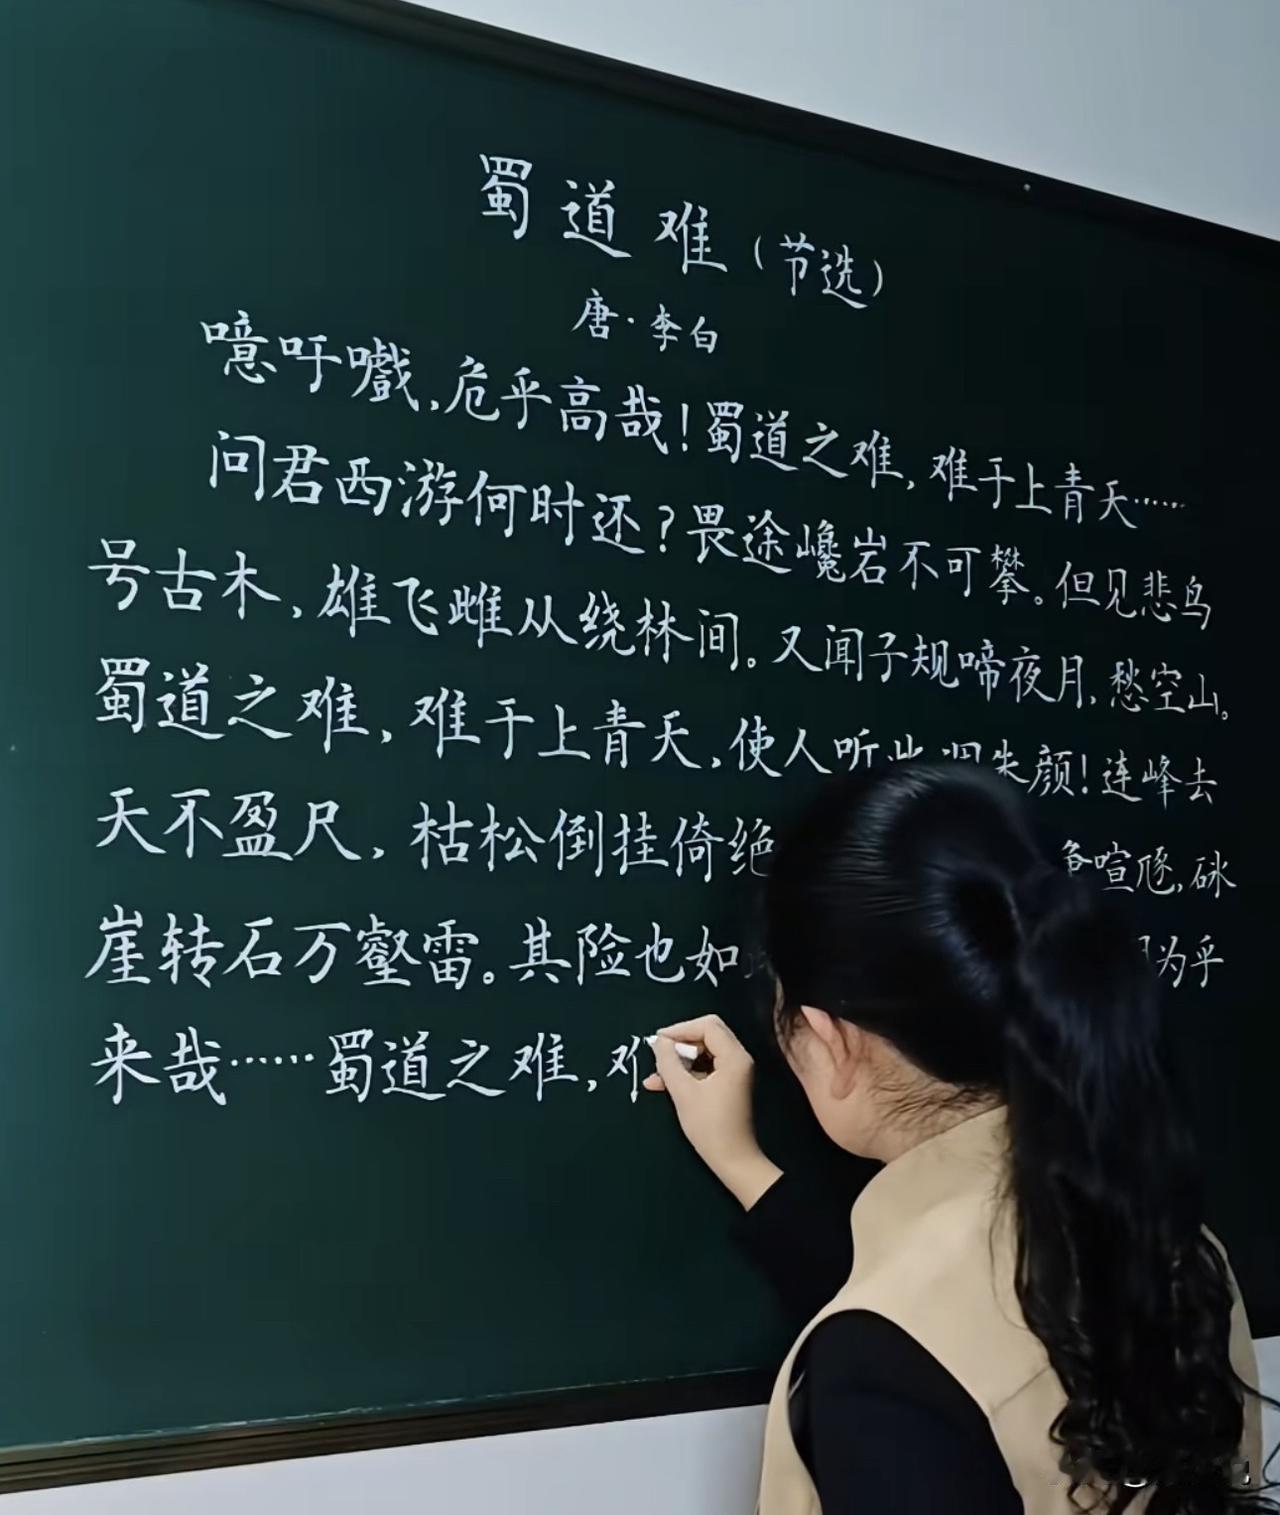 蜀道难(节选)
唐·李白
噫吁嚱,危乎高哉!蜀道之难,难于上青天……
问君西游何时还?畏途巉岩不可攀。但见悲鸟
号古木,雄飞雌从绕林间。又闻子规啼夜月,愁空山。
蜀道之难,难于上青天,使人听此凋朱颜!连峰去
天不盈尺,枯松倒挂倚绝 喧豗,砯
崖转石万壑雷。其险也如此 为乎
来哉……蜀道之难,难